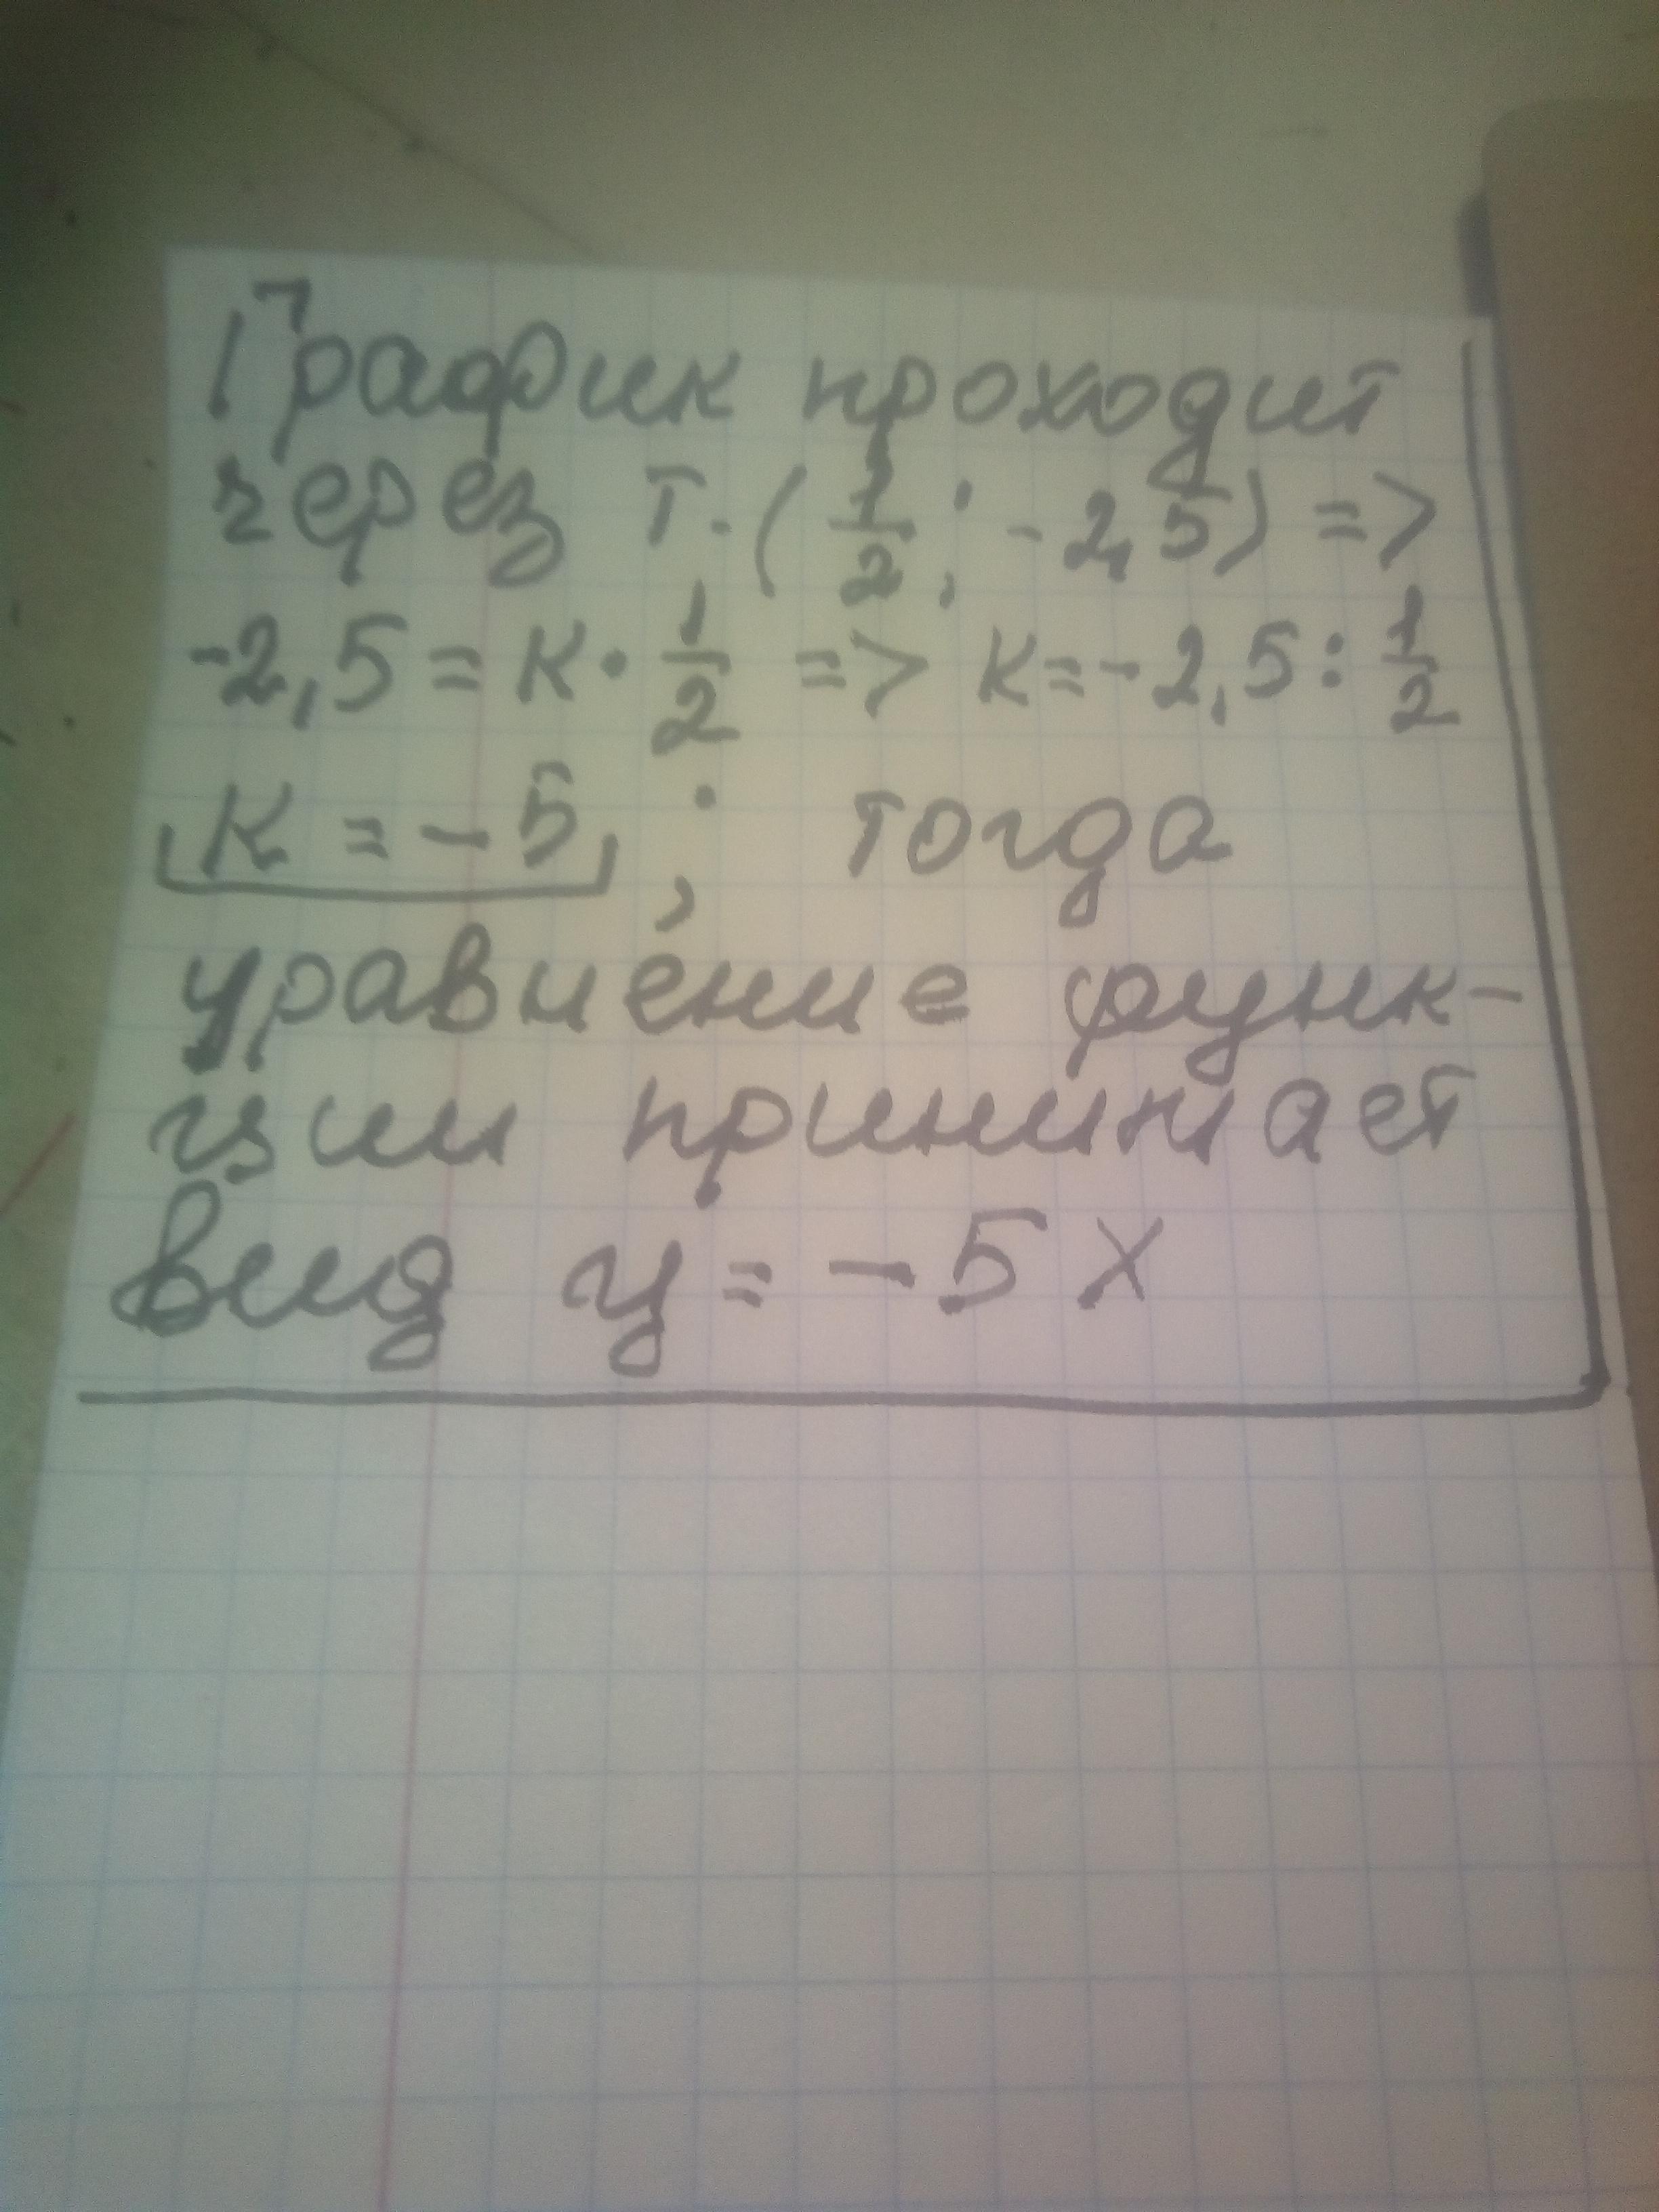 График проходит
через т. (1/2; -2,5) =>
-2,5 = к · 1/2 => к = -2,5 : 1/2
к = -5; тогда
уравнение функ-
ции принимает
вид y = -5x